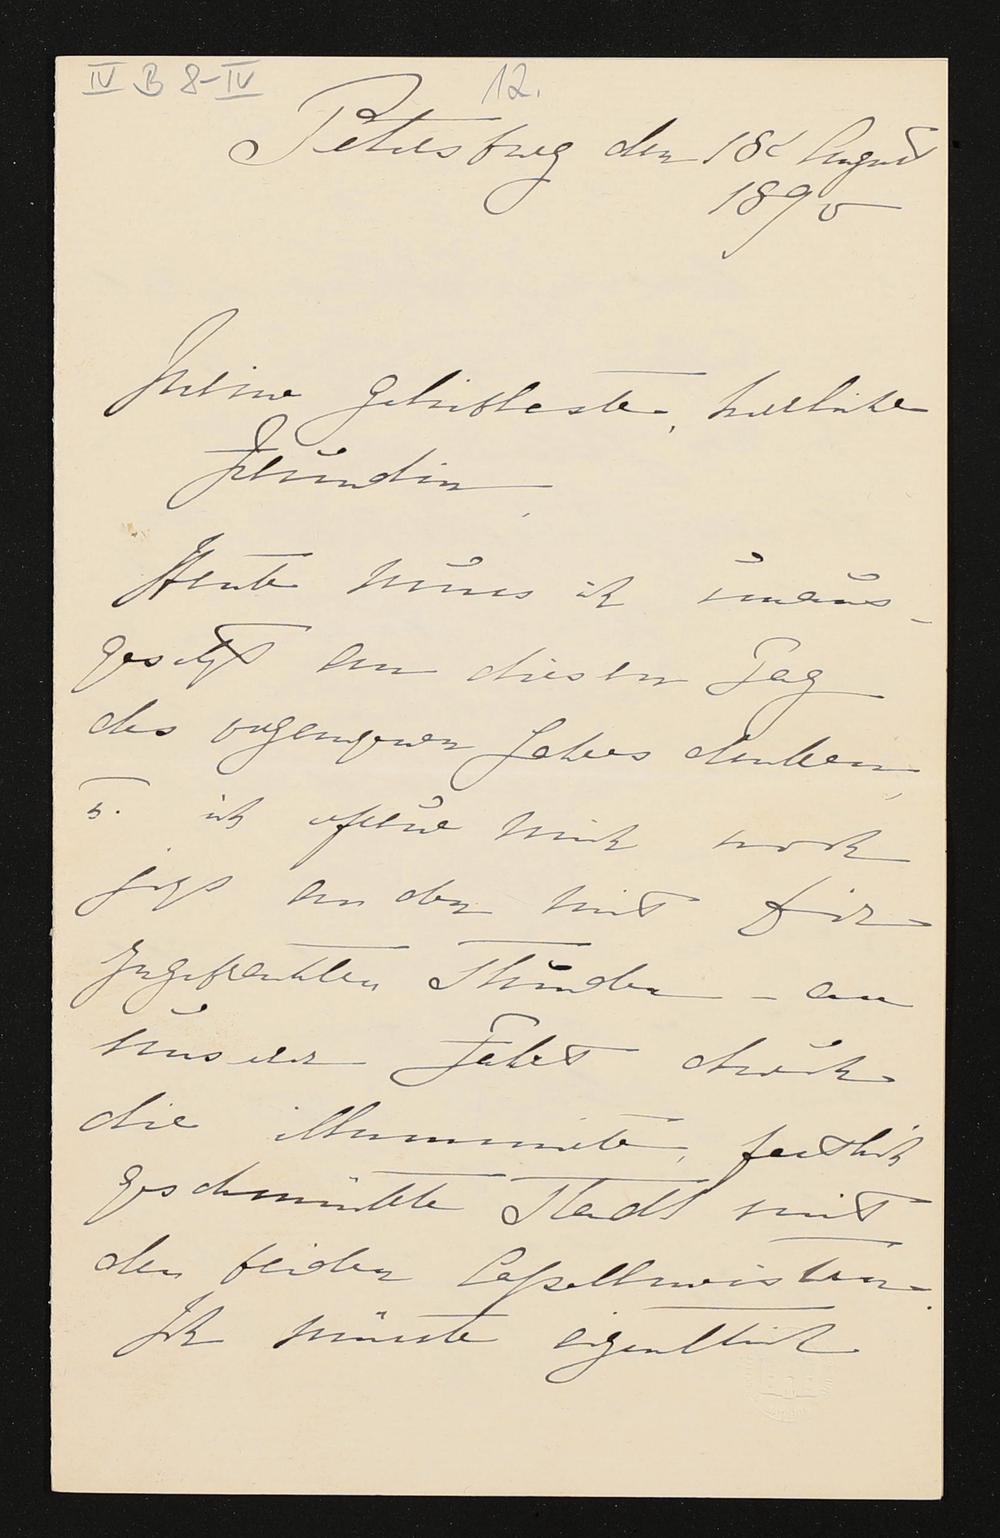 IV B 8-IV
12.
Petersburg den 18t August
1890
Meine Geliebteste, herrliche
Freundin
Heute muss ich unaus-
gesetzt an diesen Tag
des vergangenen Jahres denken,
u. ich erfreue mich noch
jetzt an den mit Dir
zugebrachten Stunden – an
unsere Fahrt durch
die illuminirte, festlich
geschmückte Stadt mit
den beiden Capellmeistern.
Ich müsste eigentlich